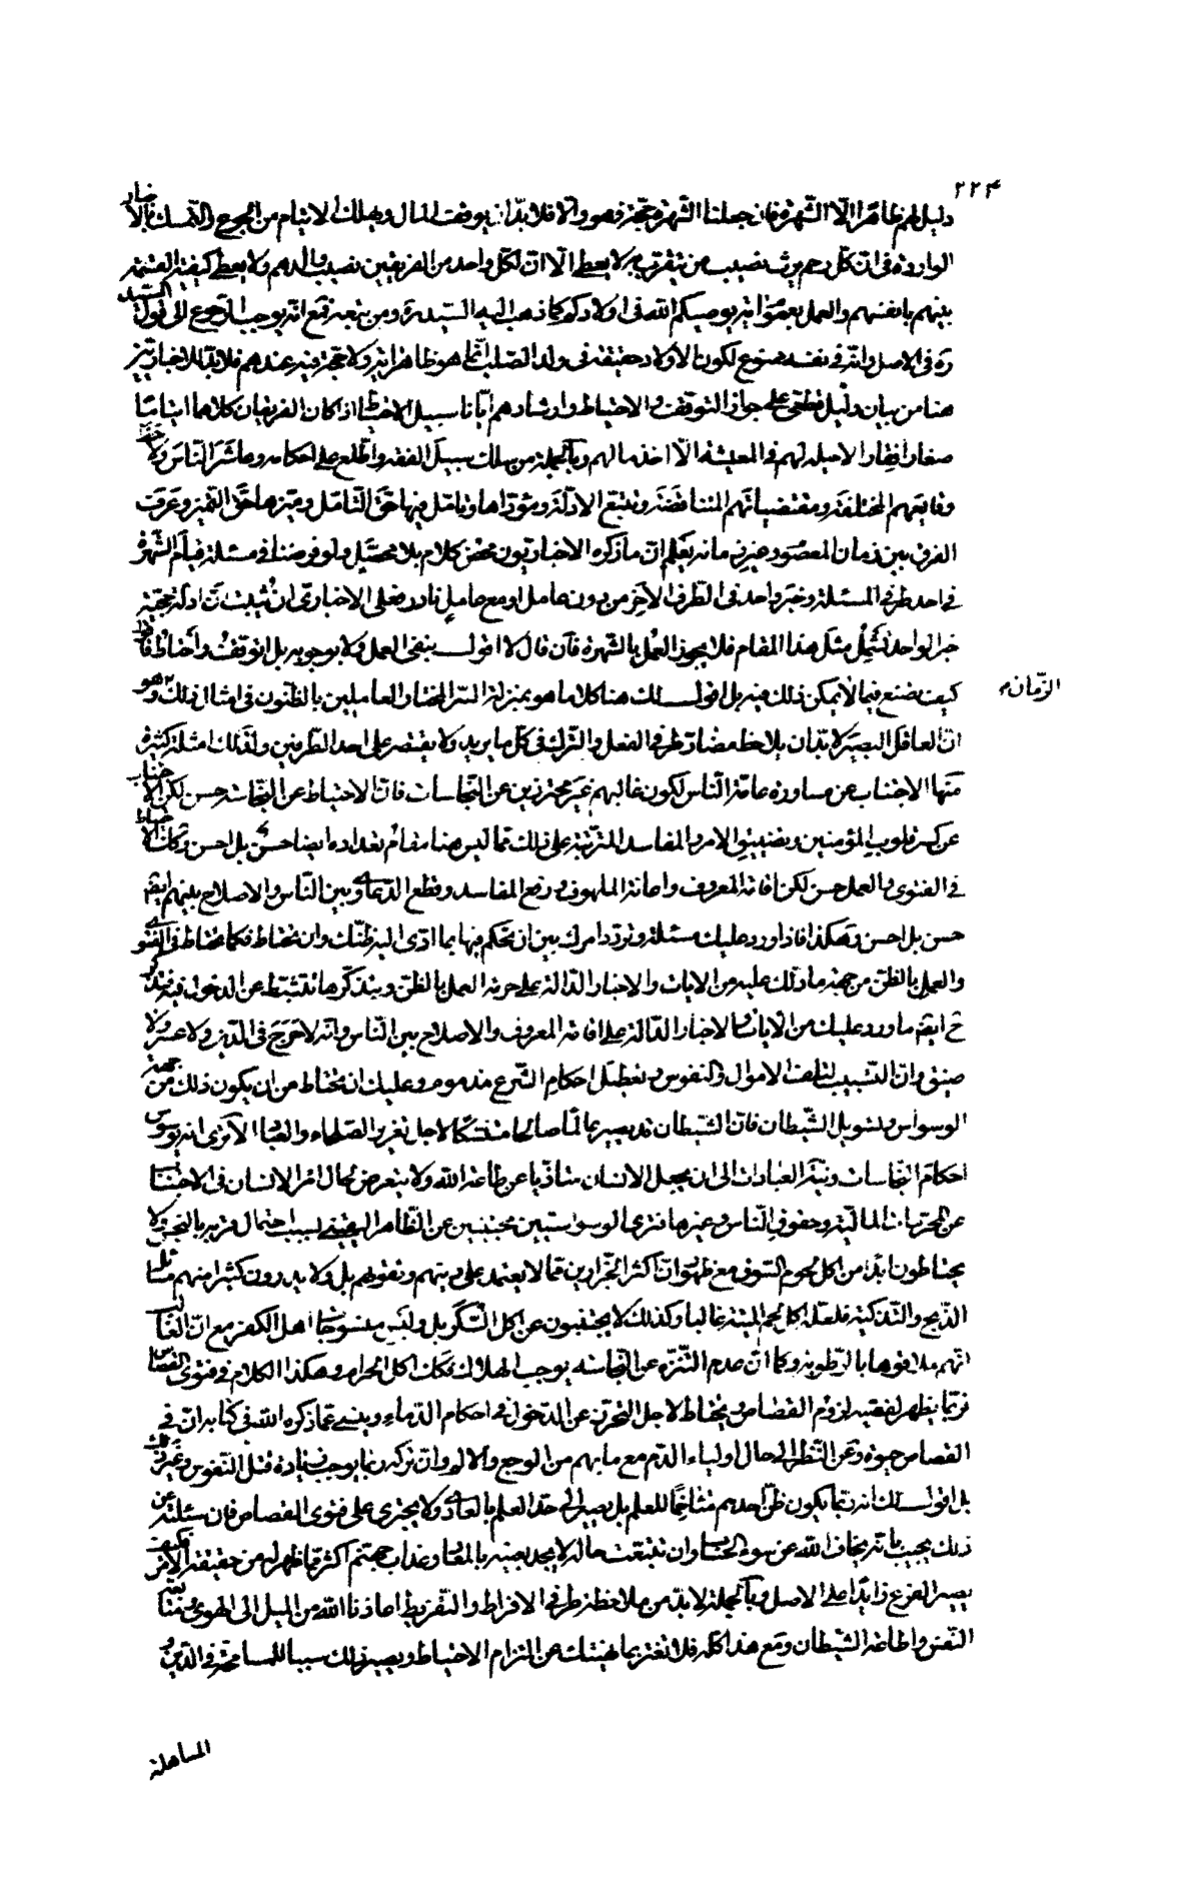 ٢٢۴
دليل لهم ظاهرا الّا الشّهرة فان جعلنا الشّهرة حجّة فهو والّا فلا بدّ ان يوقف المال ويهلك الايتام من الجوع والتمسك بالاخبار
الواردة فى انّ كلّ رحم يرث نصيب من يتقرّب به لا يعطى الّا انّ لكلّ واحد من الفريقين نصيب والدهم ولا يعطى كيفيّة القسمة
بينهم بانفسهم والعمل بعموم اية يوصيكم اللّه فى اولادكم كما ذهب اليه السّيّد ره ومن تبعه فمع انّه يوجب الرّجوع الى قول السّيّد
ره فى الاصل وانّه فى نفسه ممنوع لكون الاولاد حقيقة فى ولد الصّلب انّما هو ظاهر اية ولا حجّة فيه عندهم فلا بدّ للاخباريّين
هنا من بيان دليل قطعى على جواز التوقّف والاحتياط وارشادهم ايّانا سبيل الاحتياط اذا كان الفريقان كلاهما ايتاما
صغارا فقارا لا حيلة لهم فى المعيشة الّا اخذ مالهم وبالجملة من سلك سبيل الفقه واطّلع على احكامه وعاشر النّاس ولاحظ
وقايعهم المختلفة ومقتضياتهم المتناقضة وتتبّع الادلّة ومؤدّاها وتامّل فيها حقّ التّامّل وميّزها حقّ التّميز وعرف
الفرق بين زمان المعصوم وغيره ما نه يعلم انّ ما ذكره الاخباريّون محض كلام بلا محصّل ولو فرضنا فى مسئلة قيام الشّهرة
فى احد طرفى المسئلة وخبر واحد فى الطّرف الاخر من دون عامل او مع عامل نادر فعلى الاخبارى ان يثبت انّ ادلّة حجّيّة
خبر الواحد تشمل مثل هذا المقام فلا يجوز العمل بالشّهرة فان قال لا اقول بنفى العمل ولا بوجوبه بل اتوقّف واحتاط فاقول
كيف تصنع فيما لا يمكن ذلك فيه بل اقول لك هنا كلاما هو بمنزلة السّر لاختيار العاملين بالظّنون فى امثال ذلك الزّمان وهو
انّ العاقل البصير لا بدّ ان يلاحظ مضارّ طرفى الفعل والترك فى كلّ ما يريد ولا يقتصر على احد الطّرفين ولذلك امثلة كثيرة
منها الاجتناب عن مساورة عامّة النّاس لكون غالبهم غير محترزين عن النّجاسات فانّ الاحتياط عن النّجاسة حسن لكن الاجتناب
عن كسر قلوب المؤمنين وتضييق الامر والمفاسد المترتّبة على ذلك ممّا ليس هنا مقام تعداده ايضا حسن بل احسن وكك الاحتياط
فى الفتوى والعمل حسن لكن اقامة المعروف واعانة الملهوف ورفع المفاسد وقطع الدّعاوى بين النّاس والاصلاح بينهم ايضا
حسن بل احسن وهكذا فاذا ورد عليك مسئلة وتردّد امرك بين ان تحكم فيها بما ادّى اليه ظنّك وان تحتاط فكما تحتاط فى الفتوى
والعمل بالظّن من جهة ما دلّك عليه من الايات والاخبار الدّالة على حرمة العمل بالظّن وبتذكّرها تتثبّط عن الدخول فيه فتذكّر
ح ايضا ما ورد عليك من الايات والاخبار الدّالة على اقامة المعروف والاصلاح بين النّاس وانّه لا حرج فى الدّين ولا عسر ولا
ضيق وانّ التسبيب لتلف الاموال والنفوس وتعطيل احكام الشّرع مذموم وعليك ان تحتاط من ان يكون ذلك من جهة
الوسواس وتسويل الشّيطان فانّ الشّيطان قد يصير عالما صالحا متنسّكا لاجل تغرير الصّلحاء والعبّاد الا ترى انه يوسوس
احكام النّجاسات ونيّة العبادات الى ان يجعل الانسان متأذّيا عن طاعة اللّه ولا يتعرض لحال امر الانسان فى الاجتناب
عن المحرّمات الماليّة وحقوق النّاس وغيرها فترى الوسواسيّين مجتنبين عن الظّاهر اليقينى بسبب احتمال فريد بالنجس ولا
يحتاطون ابدا من اكل لحوم السّوق مع ظهور انّ اكثر الجزّارين ممّا لا يعتمد على دينهم وتقويهم بل ولا يدرون كثيرا منهم مسائل
الذّبح والتّذكية فلعلّه اكل لحم الميتة غالبا وكذلك لا يجتنبون عن اكل السّكّر بل ولبس منسوجات اهل الكفر مع انّ الغالب
انّهم ملاقوها بالرّطوبة وكما انّ عدم التّنزّه عن النّجاسة يوجب الهلاك فكك اكل الحرام وهكذا الكلام فى فتوى القصاص
فربّما يظهر لفقيه لزوم القصاص ويحتاط لاجل التّحرّز عن الدخول فى احكام الدّماء وينسى عمّا ذكره اللّه فى كتابه انّ فى
القصاص حيوة وعن النّظر الى حال اولياء الدّم مع ما بهم من الوجع والالم وانّ تركه ربّما يوجب زيادة قتل النّفوس وغير ذلك
بل اقول لك انه ربّما يكون ظنّ احدهم متاخما للعلم بل يصير الى حدّ العلم العادى ولا يجترى على فتوى القصاص فان سئلته عن
ذلك يجيب بانّه يخاف اللّه عن سوء الحساب وان تتبّعت حاله لا يجد يقينه بالمعاد وعذاب جهنّم اكثر ممّا ظهر له من حقيقة الامر فكيف
يصير الفرع زايدا على الاصل وبالجملة لا بدّ من ملاحظة طرفى الافراط والتّفريط اعاذنا اللّه من الميل الى الهوى ومتابعة
النّفس واطاعة الشّيطان ومع هذا كلّه فلا تغترّ بما نبّهتك عن التزام الاحتياط ويصير ذلك سببا للمسامحة فى الدّين و
المساهلة